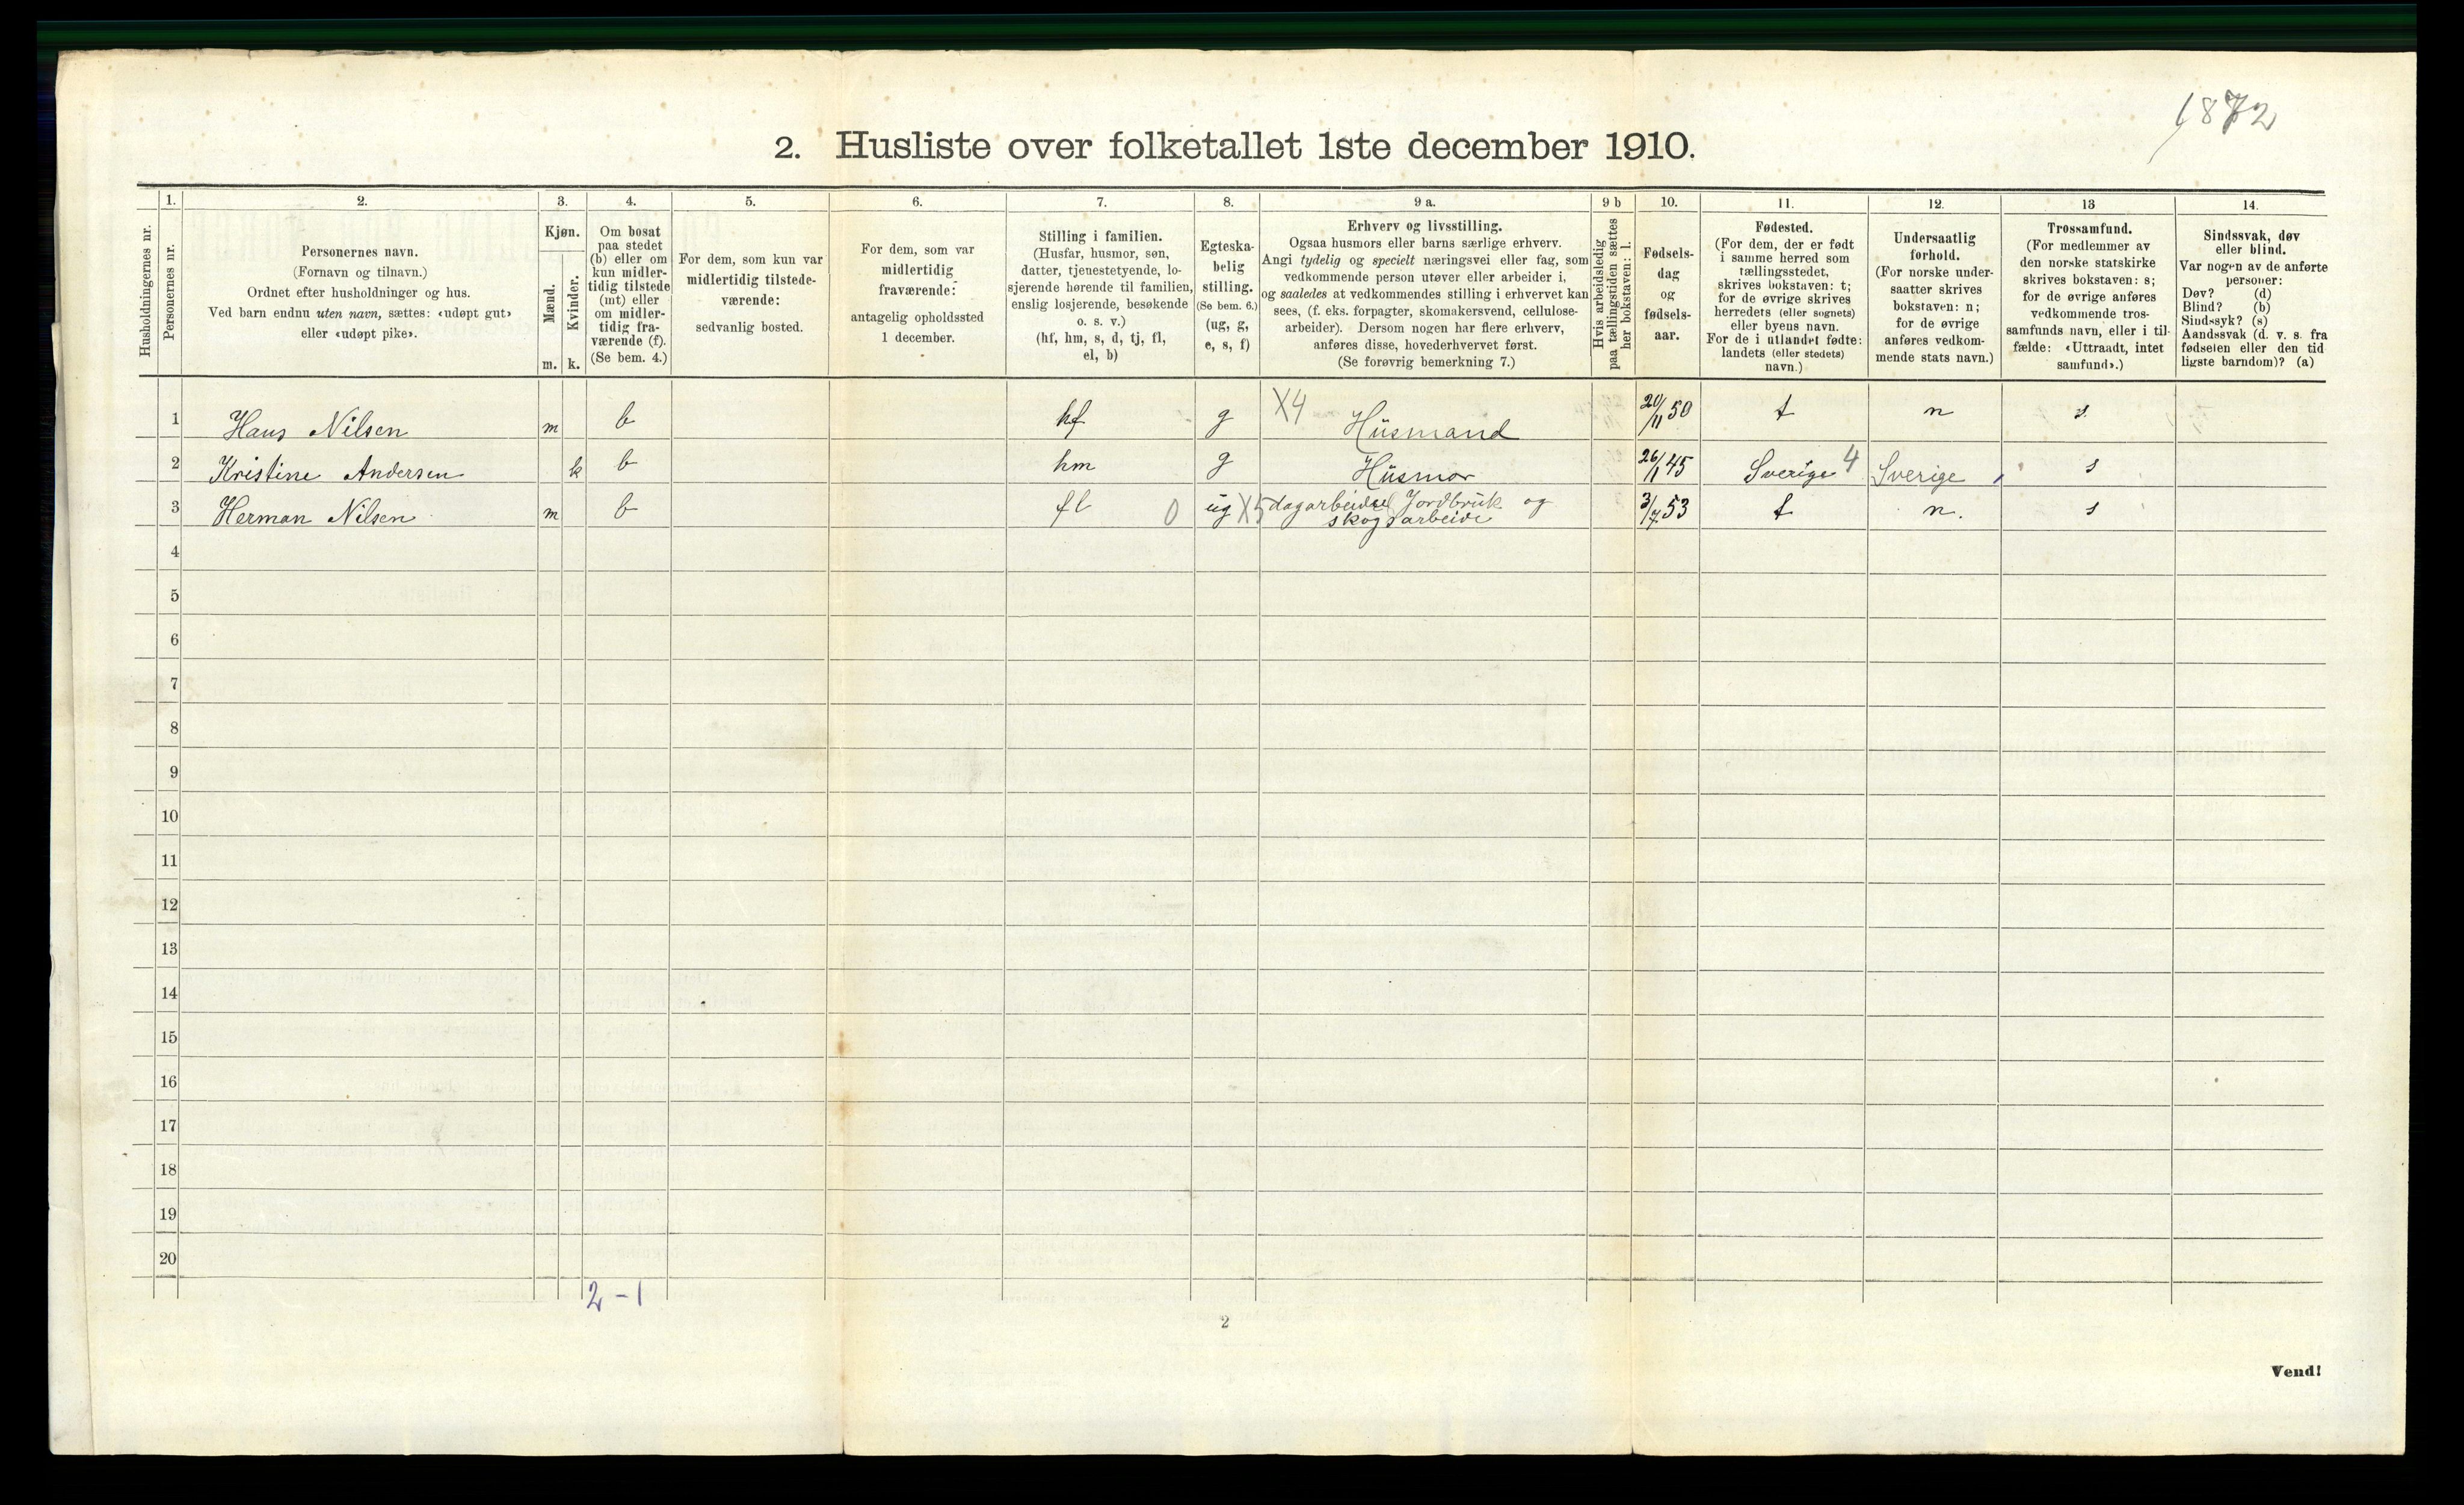 1872
2. Husliste over folketallet 1ste december 1910.
Husholdningernes nr.
1.
Personernes nr.
2.
Personernes navn.
(Fornavn og tilnavn.)
Ordnet efter husholdninger og hus.
Ved barn endnu uten navn, sættes: «udøpt gut»
eller «udøpt pike».
3.
Kjøn.
Mænd.
Kvinder.
m. k.
4.
Om bosat
paa stedet
(b) eller om
kun midler-
tidig tilstede
(mt) eller
om midler-
tidig fra-
værende (f).
(Se bem. 4.)
5.
For dem, som kun var
midlertidig tilstede-
værende:
sedvanlig bosted.
6.
For dem, som var
midlertidig
fraværende:
antagelig opholdssted
1 december.
7.
Stilling i familien.
(Husfar, husmor, søn,
datter, tjenestetyende, lo-
sjerende hørende til familien,
enslig losjerende, besøkende
o. s. v.)
(hf, hm, s, d, tj, fl,
el, b)
8.
Egteska-
belig
stilling.
(Se bem. 6.)
(ug, g,
e, s, f)
9 a.
Erhverv og livsstilling.
Ogsaa husmors eller barns særlige erhverv.
Angi tydelig og specielt næringsvei eller fag, som
vedkommende person utøver eller arbeider i,
og saaledes at vedkommendes stilling i erhvervet kan
sees, (f. eks. forpagter, skomakersvend, cellulose-
arbeider). Dersom nogen har flere erhverv,
anføres disse, hovederhvervet først.
(Se forøvrig bemerkning 7.)
9 b
Hvis arbeidsledig
paa tællingstiden sættes
her bokstaven: l.
10.
Fødsels-
dag
og
fødsels-
aar.
11.
Fødested.
(For dem, der er født
i samme herred som
tællingsstedet,
skrives bokstaven: t;
for de øvrige skrives
herredets (eller sognets)
eller byens navn.
For de i utlandet fødte:
landets (eller stedets)
navn.)
12.
Undersaatlig
forhold.
(For norske under-
saatter skrives
bokstaven: n;
for de øvrige
anføres vedkom-
mende stats navn.)
13
Trossamfund.
(For medlemmer av
den norske statskirke
skrives bokstaven: s;
for de øvrige anføres
vedkommende tros-
samfunds navn, eller i til-
fælde: «Uttraadt, intet
samfund».)
14.
Sindssvak, døv
eller blind.
Var nogen av de anførte
personer:
Døv? (d)
Blind? (b)
Sindssyk? (s)
Aandssvak (d. v. s. fra
fødselen eller den tid
ligste barndom)? (a)
1 Hans Nilsen m b hf g X4 Husmand 20/11 50 t n s.
2 Kristine Andersen k b hm g Husmor 26/1 45 Sverige 4 Sverige s
3 Herman Nilsen m b fl 0 ug X5 dagarbeide Jordbruk og
skogsarbeide 3/7 53 t n. s
4
5
6
7
8
9
10
11
12
13
14
15
16
17
18
19
20
2-1
2
Vend!